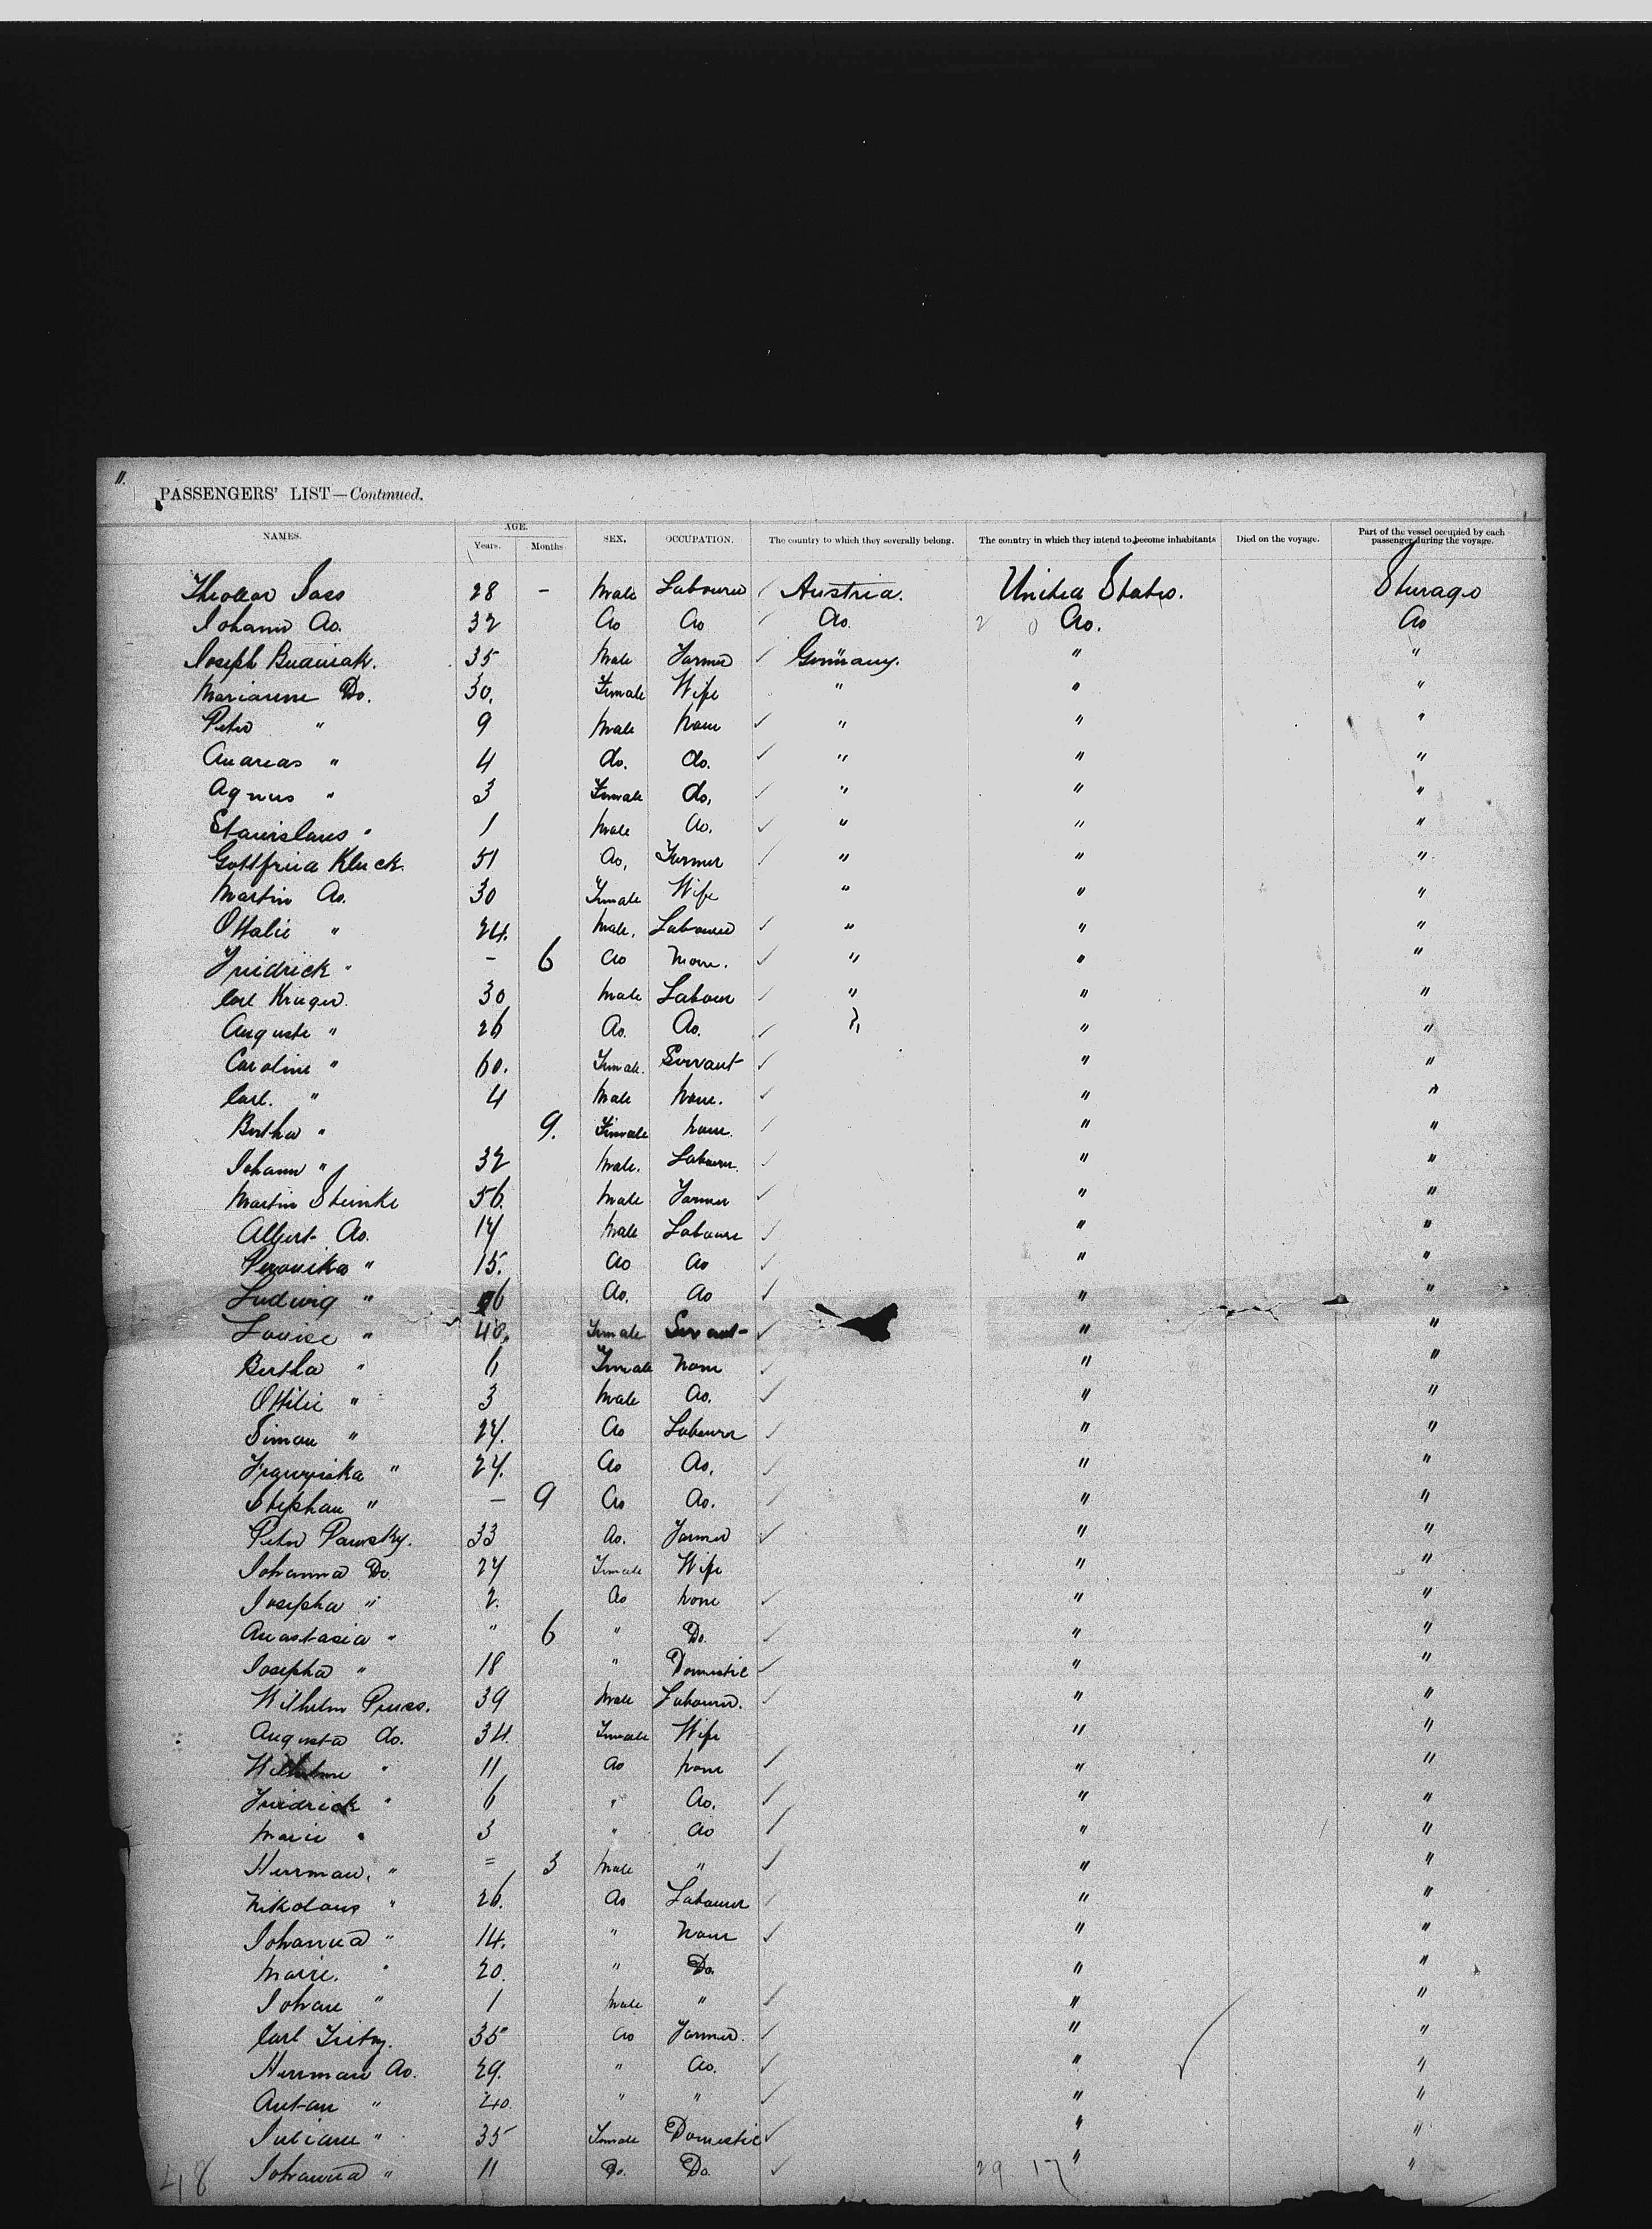 11.
PASSENGERS' LIST—Continued.
NAMES. AGE. Years. Months SEX. OCCUPATION. The country to which they severally belong. The country in which they intend to become inhabitants Died on the voyage. Part of the vessel occupied by each passenger during the voyage.
Theodor Sass 28 - Male Labourer Austria. United States. Sturage
Johann do. 32 do do do. do. do
Joseph Budnisak. 35 Male Farmer Germany. " "
Marianne Do. 30. Female Wife " " "
Peter " 9 Male None " " "
Andreas " 4 do. do. " " "
Agnes " 3 Female do. " " "
Stanislaus " 1 Male do. " " "
Gottfried Kluck. 51 do. Farmer " " "
Martin do. 30 Female Wife " " "
Ottalie " 24. Male. Labourer " " "
Fridrick " - 6 do None. " " "
Carl Kruger. 30 Male Labour " " "
Auguste " 26 do. do. " " "
Caroline " 60. Female. Servant " "
Carl. " 4 Male None. " "
Bertha " 9. Female None. " "
Johann " 32 Male. Labourer. " "
Martin Steinke 56. Male Farmer " "
Albert do. 17 Male Labourer " "
Veronika " 15. do do " "
Ludwig " 6 do. do " "
Louise " 40. Female Servant " "
Bertha " 6 Female None " "
Ottilie " 3 Male do. " "
Simon " 27. do Labourer " "
Franziska " 27. do do. " "
Stephan " - 9 do do. " "
Peter Pawsky. 33 do. Farmer " "
Johanna Do. 27 Female Wife " "
Josepha " 2. do None " "
Anastasia " " 6 " Do. " "
Josepha " 18 " Domestic " "
Wilhelm Preuss. 39 Male Labourer. " "
Augusta do. 34. Female Wife " "
" 11 do None " "
Fridrick " 6 " do. " "
Marie " 3 " do " "
Herrman. " = 3 Male " " "
Nikolaus " 26. do Labourer " "
Johanna " 14. " None " "
Marie. " 20. " Do. " "
Johan " 1 Male " " "
Carl 35 do Farmer. " "
Herrman do. 29. " do. " "
Anton " 40. " " " "
Juliane " 35 Female Domestic " "
Johanna " 11 Do. Do. " "
48 29 17